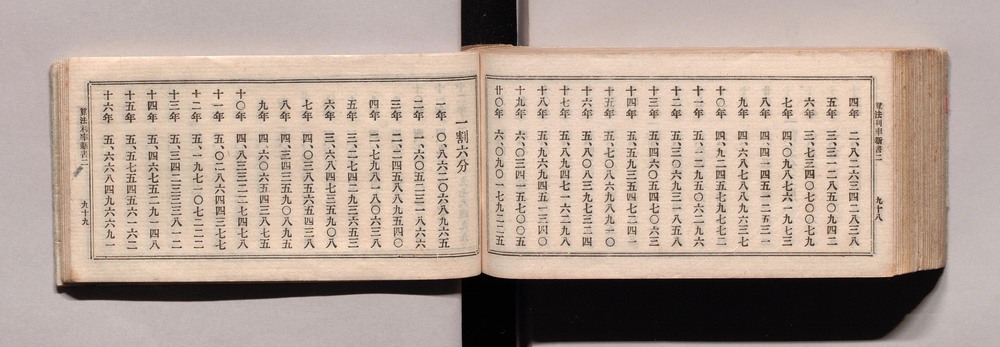 算法利率新書二
九十八
四年 二、八二六三四二八三八
五年 三、三一二八五〇九四二
六年 三、七三四〇七〇〇七九
七年 四、〇九八七六一九七三
八年 四、四一四五一二五三一
九年 四、六八七八八九六三七
十〇年 四、九二四五七九七七二
十一年 五、一二九五〇六二九六
十二年 五、三〇六九三一八五八
十三年 五、四六〇五四七〇六三
十四年 五、五九三五四七二四一
十五年 五、七〇八六九八九一〇
十六年 五、八〇八三九七三二四
十七年 五、八九四七一六二九八
十八年 五、九六九四五一三四〇
十九年 六、〇三四一五七〇〇五
廿〇年 六、〇九〇一七九二二五
一割六分
一年 〇、八六二〇六八九六五
二年 一、六〇五二三一八六六
三年 二、二四五八八九五四〇
四年 二、七九八一八〇六三八
五年 三、二七四二九三六五三
六年 三、六八四七三五九〇八
七年 四、〇三八五六五四三八
八年 四、三四三五九〇八九五
九年 四、六〇六五四三八七五
十〇年 四、八三三二二七四七八
十一年 五、〇二八六四四三七七
十二年 五、一九七一〇七二二二
十三年 五、三四二三三三八一二
十四年 五、四六七五二九一四八
十五年 五、五七五四五六一六二
十六年 五、六六八四九六六九一
算法利率新書二
九十九